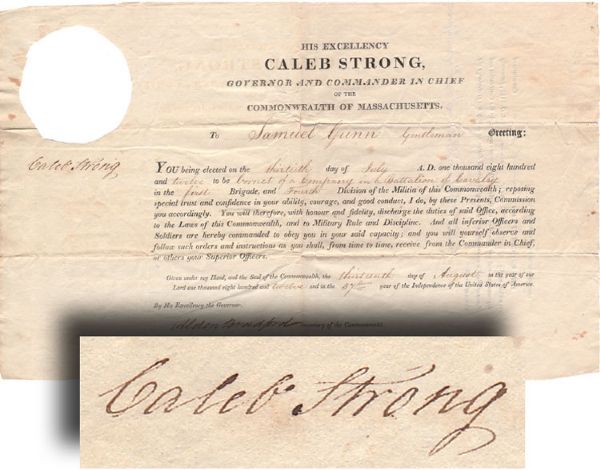 HIS EXCELLENCY
CALEB STRONG,
GOVERNOR AND COMMANDER IN CHIEF
OF THE
COMMONWEALTH OF MASSACHUSETTS.
To Samuel Gunn Gentleman Greeting:
Caleb Strong
YOU being elected on the thirtieth day of July A. D. one thousand eight hundred
and twelve to be Cornet of a Company in a Battalion of Cavalry
in the first Brigade, and Fourth Division of the Militia of this Commonwealth; reposing
special trust and confidence in your ability, courage, and good conduct, I do, by these Presents, Commission
you accordingly. You will therefore, with honour and fidelity, discharge the duties of said Office, according
to the Laws of this Commonwealth, and to Military Rule and Discipline. And all inferior Officers and
Soldiers are hereby commanded to obey you in your said capacity; and you will yourself observe and
follow such orders and instructions as you shall, from time to time, receive from the Commander in Chief,
or others your Superior Officers.
Given under my Hand, and the Seal of the Commonwealth, the thirteenth day of August in the year of our
Lord one thousand eight hundred and twelve and in the 37th year of the Independence of the United States of America.
By His Excellency the Governor.
Alden Bradford Secretary of the Commonwealth.
Caleb Strong